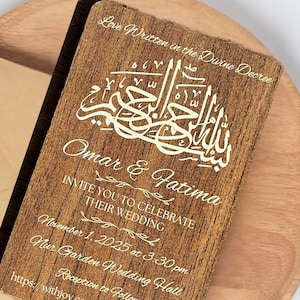 Love Written in the Divine Decree
بسم الله الرحمن الرحيم
Omar & Fatima
INVITE YOU TO CELEBRATE
THEIR WEDDING
November 1, 2025 at 3:30 pm
Nur Garden Wedding Hall
Reception to Follow
https: withjoy.